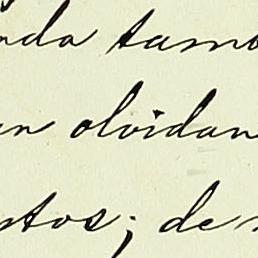 nda tamb
an olvidan
stos; de